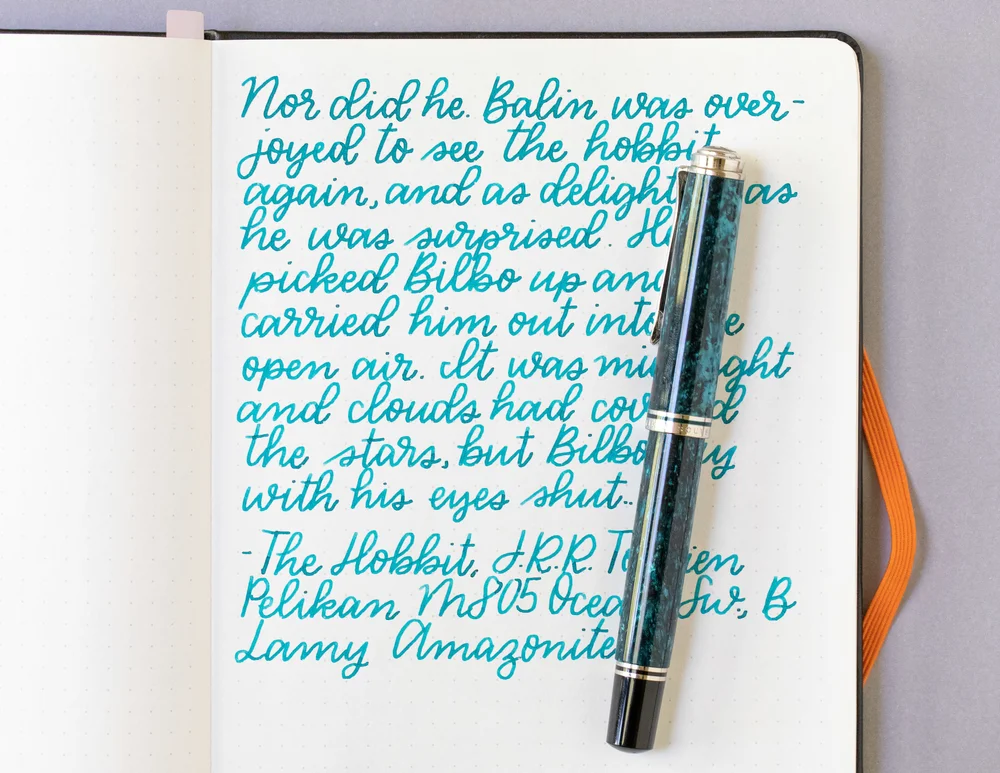 Nor did he. Balin was over-
joyed to see the hobbit
again, and as as
he was surprised.
picked Bilbo up
carried him out
open air. It was
and clouds had
the stars, but Bilbo
with his eyes shut..
- The Hobbit, J.R.R.
Pelikan M805 Sw., B
Lamy Amazonite